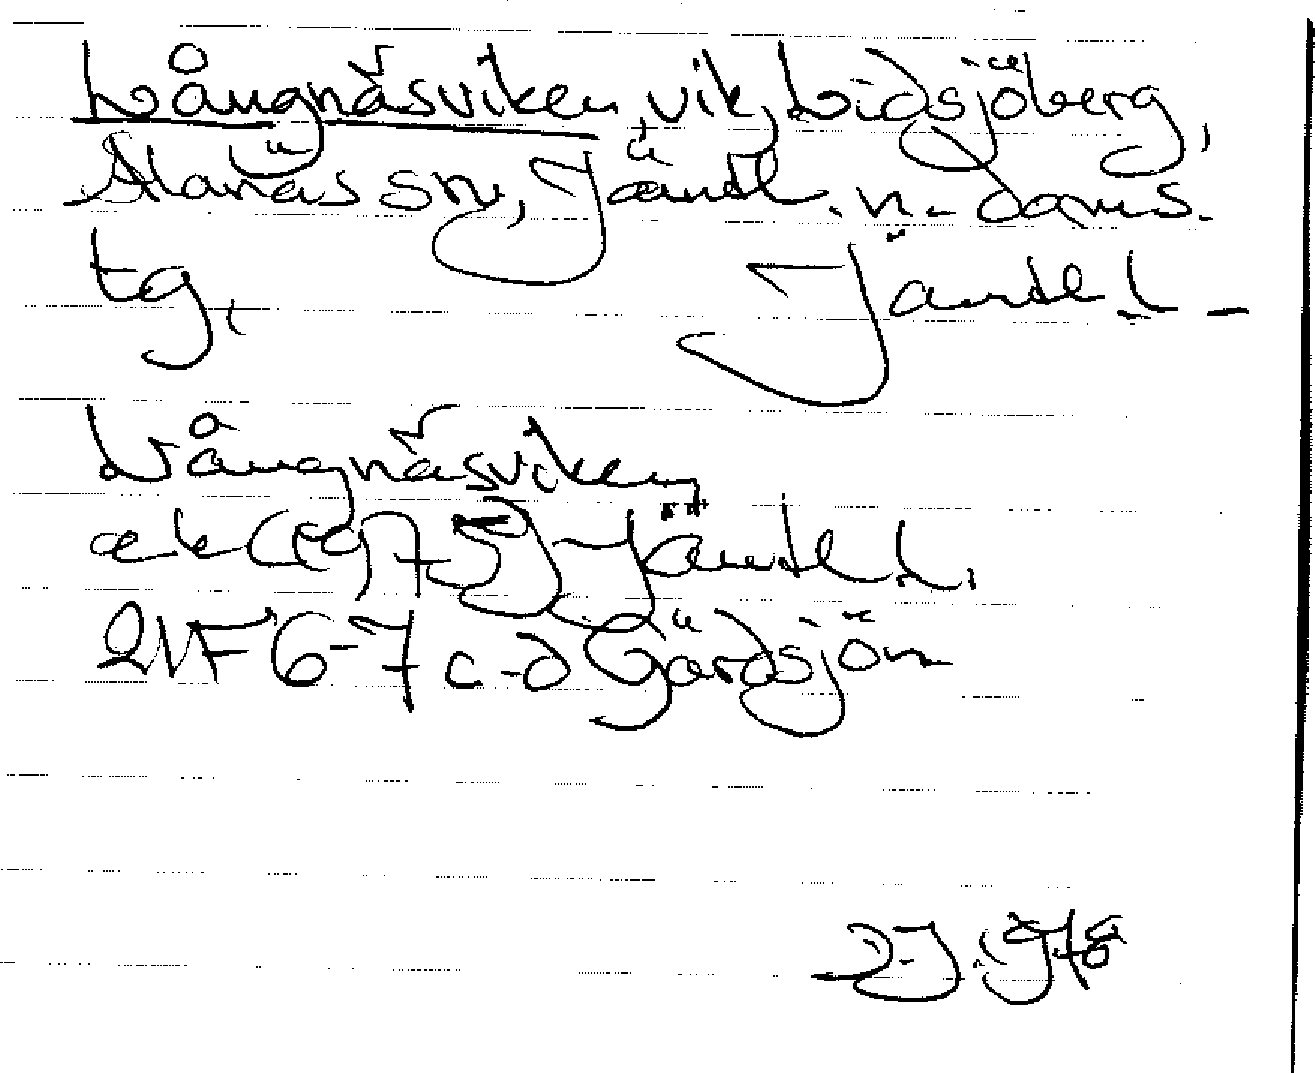 Långnäsviken, vik, Lidsjöberg,
Alanäs sn, Jämtl. n. doms.
tg, Jämtl. l.
Långnäsviken,
ek (1975) Jämtl. l.
21F 6-7 c-d Gärdsjön